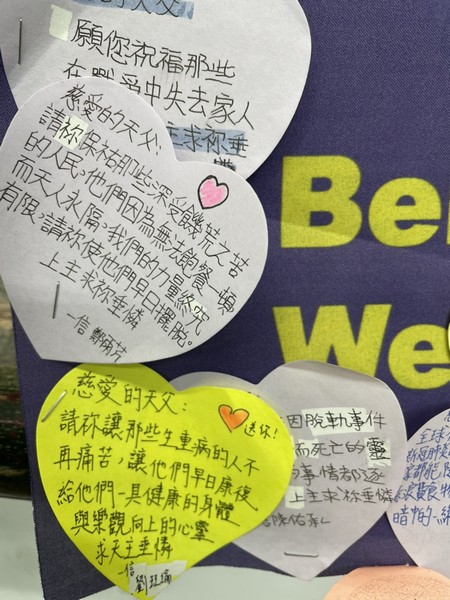 願您祝福那些
在戰爭中失去家人
主求祢垂
慈愛的天父：
請祢保祐那些深受饑荒之苦
的人民，他們因為無法飽餐一頓
而天人永隔，我們的力量終究
有限，請祢使他們早日擺脫。
上主求祢垂憐
一信
慈愛的天父：
送你！
請祢讓那些生重病的人不
再痛苦，讓他們早日康復
給他們一具健康的身體
與樂觀向上的心靈
求天主垂憐
一信
因脫軌事件
而死亡的靈
事情都逐
上主求祢垂憐
全球
Be
We